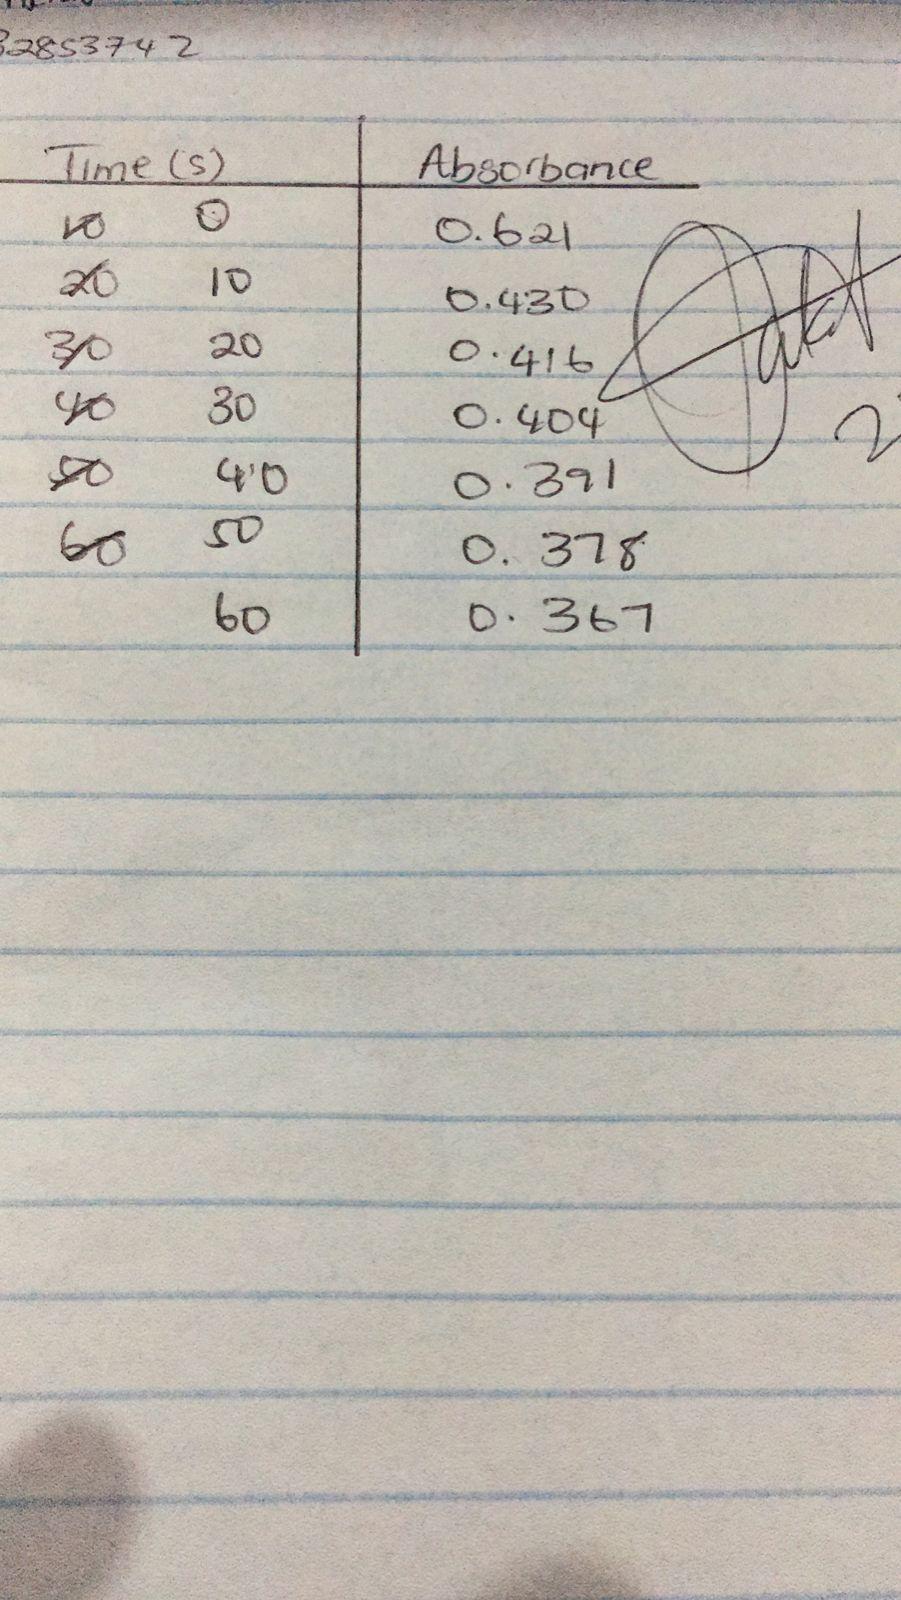 32853742
Time (s) Absorbance
10 0 0.621
20 10 0.430
30 20 0.416
40 30 0.404
50 40 0.391
60 50 0.378
60 0.367